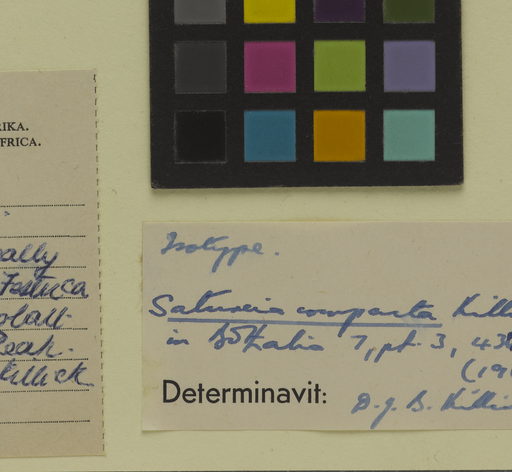 RIKA.
FRICA.
ally
Festuca
Peak.
illick
Isotype.
Satureia compacta Killi
in Bothalia 7, pt. 3, 43
(19
Determinavit: D.J.B. Killi